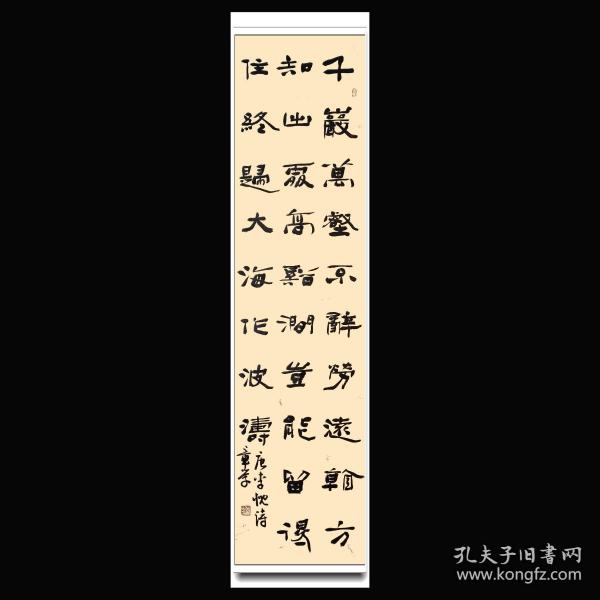 千巖萬壑不辭勞遠看方
知出處高谿澗豈能留得
住終歸大海作波濤
唐李忱詩
孔夫子旧書网
www.kongfz.com